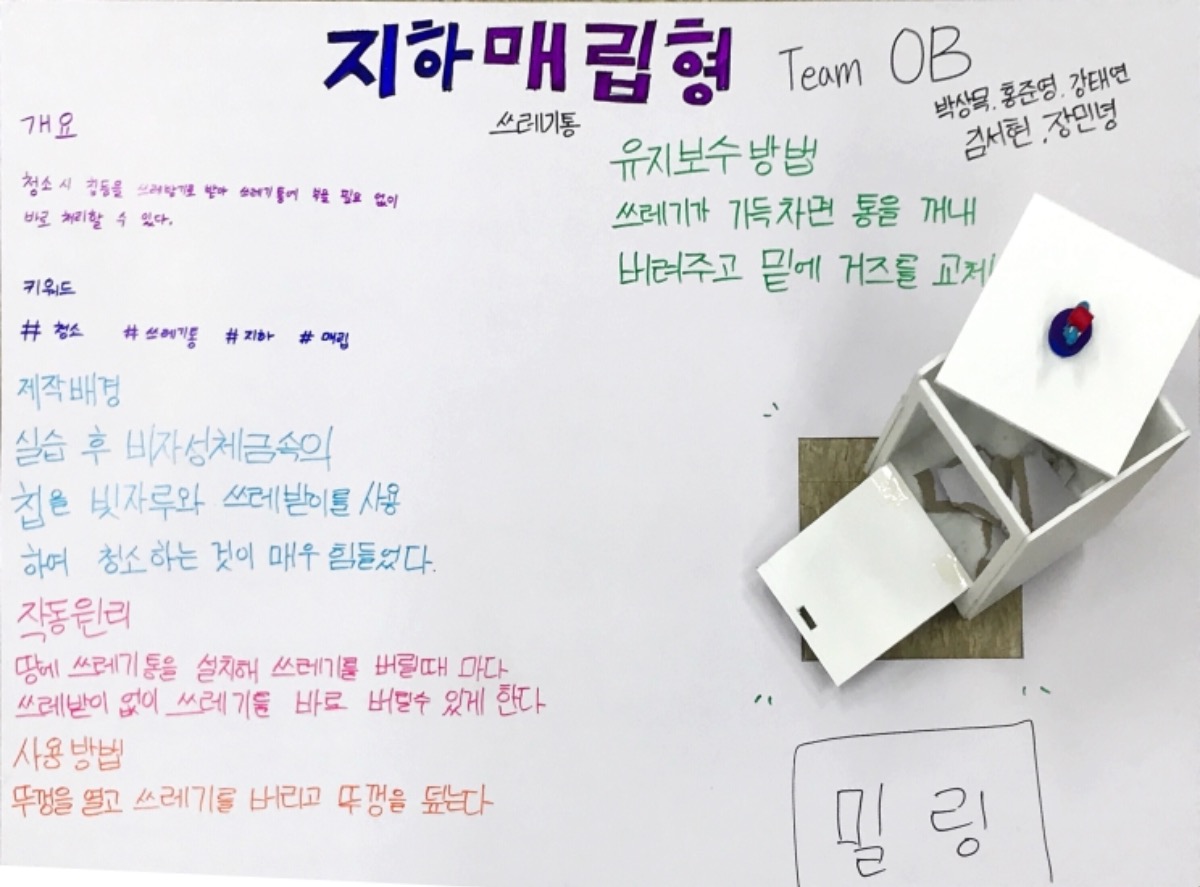 지하매립형
쓰레기통
Team OB
박상묵. 홍준영. 강태연
김서현, 장민녕
개요
청소 시 칩등을 쓰레받기로 받아 쓰레기통에 부을 필요 없이
바로 처리할 수 있다.
키워드
# 청소 # 쓰레기통 # 지하 # 매립
제작배경
실습 후 비자성체금속의
칩을 빗자루와 쓰레받이를 사용
하여 청소하는 것이 매우 힘들었다.
작동원리
땅에 쓰레기통을 설치해 쓰레기를 버릴때 마다
쓰레받이 없이 쓰레기를 바로 버릴수 있게 한다
사용방법
뚜껑을 열고 쓰레기를 버리고 뚜껑을 덮는다
유지보수방법
쓰레기가 가득차면 통을 꺼내
버려주고 밑에 거즈를 교체
밀링